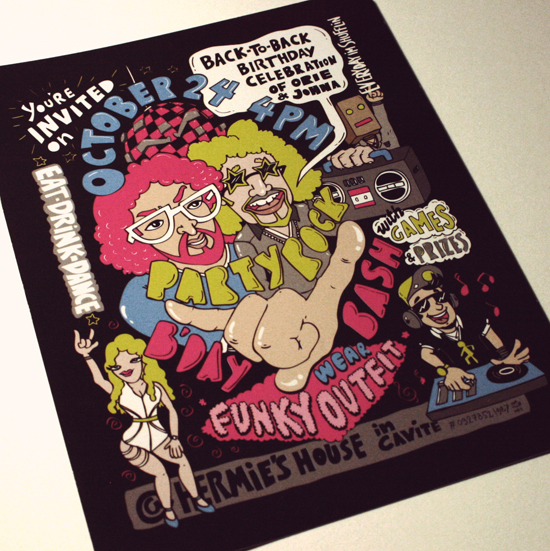 YOU'RE
INVITED
on
OCTOBER 24
4PM
BACK-TO-BACK
BIRTHDAY
CELEBRATION
OF OBIE
& JOHNA
EVERYDAY IM SHUFFLIN
EAT-DRINK-DANCE
PARTY ROCK
B'DAY
BASH
WITH
GAMES
& PRIZES
WEAR
FUNKY OUTFIT
@ HERMIE'S HOUSE in
CAVITE